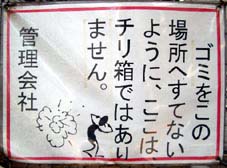 ゴミをこの
場所へすてない
ように、ここは
チリ箱ではあり
ません。
管理会社